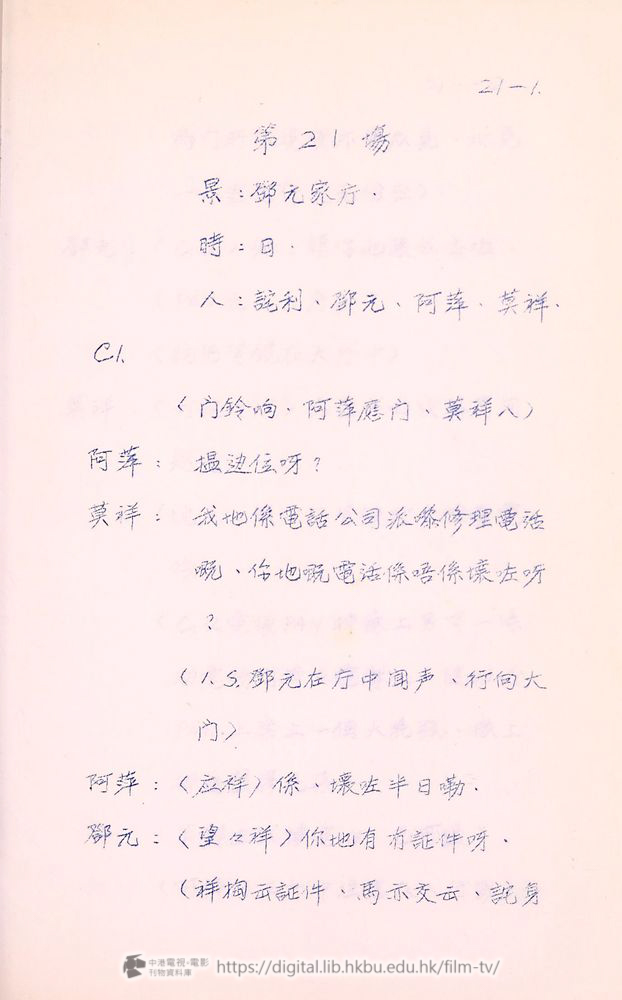 21-1.
第21場
景:鄧元家庁.
時:日.
人:詫利、鄧元、阿萍、莫祥.
C1.
(门鈴响、阿萍應门、莫祥入)
阿萍: 揾边位呀?
莫祥: 我地係電話公司派嚟修理電話
嘅、你地嘅電話係唔係壞咗呀
?
(I.S.鄧元在庁中聞声、行向大
门)
阿萍:(应祥)係、壞咗半日嘞.
鄧元:(望々祥)你地有冇証件呀.
(祥掏云証件、馬亦交云、詫身
中港電視·電影
刊物資料庫
https://digital.lib.hkbu.edu.hk/film-tv/